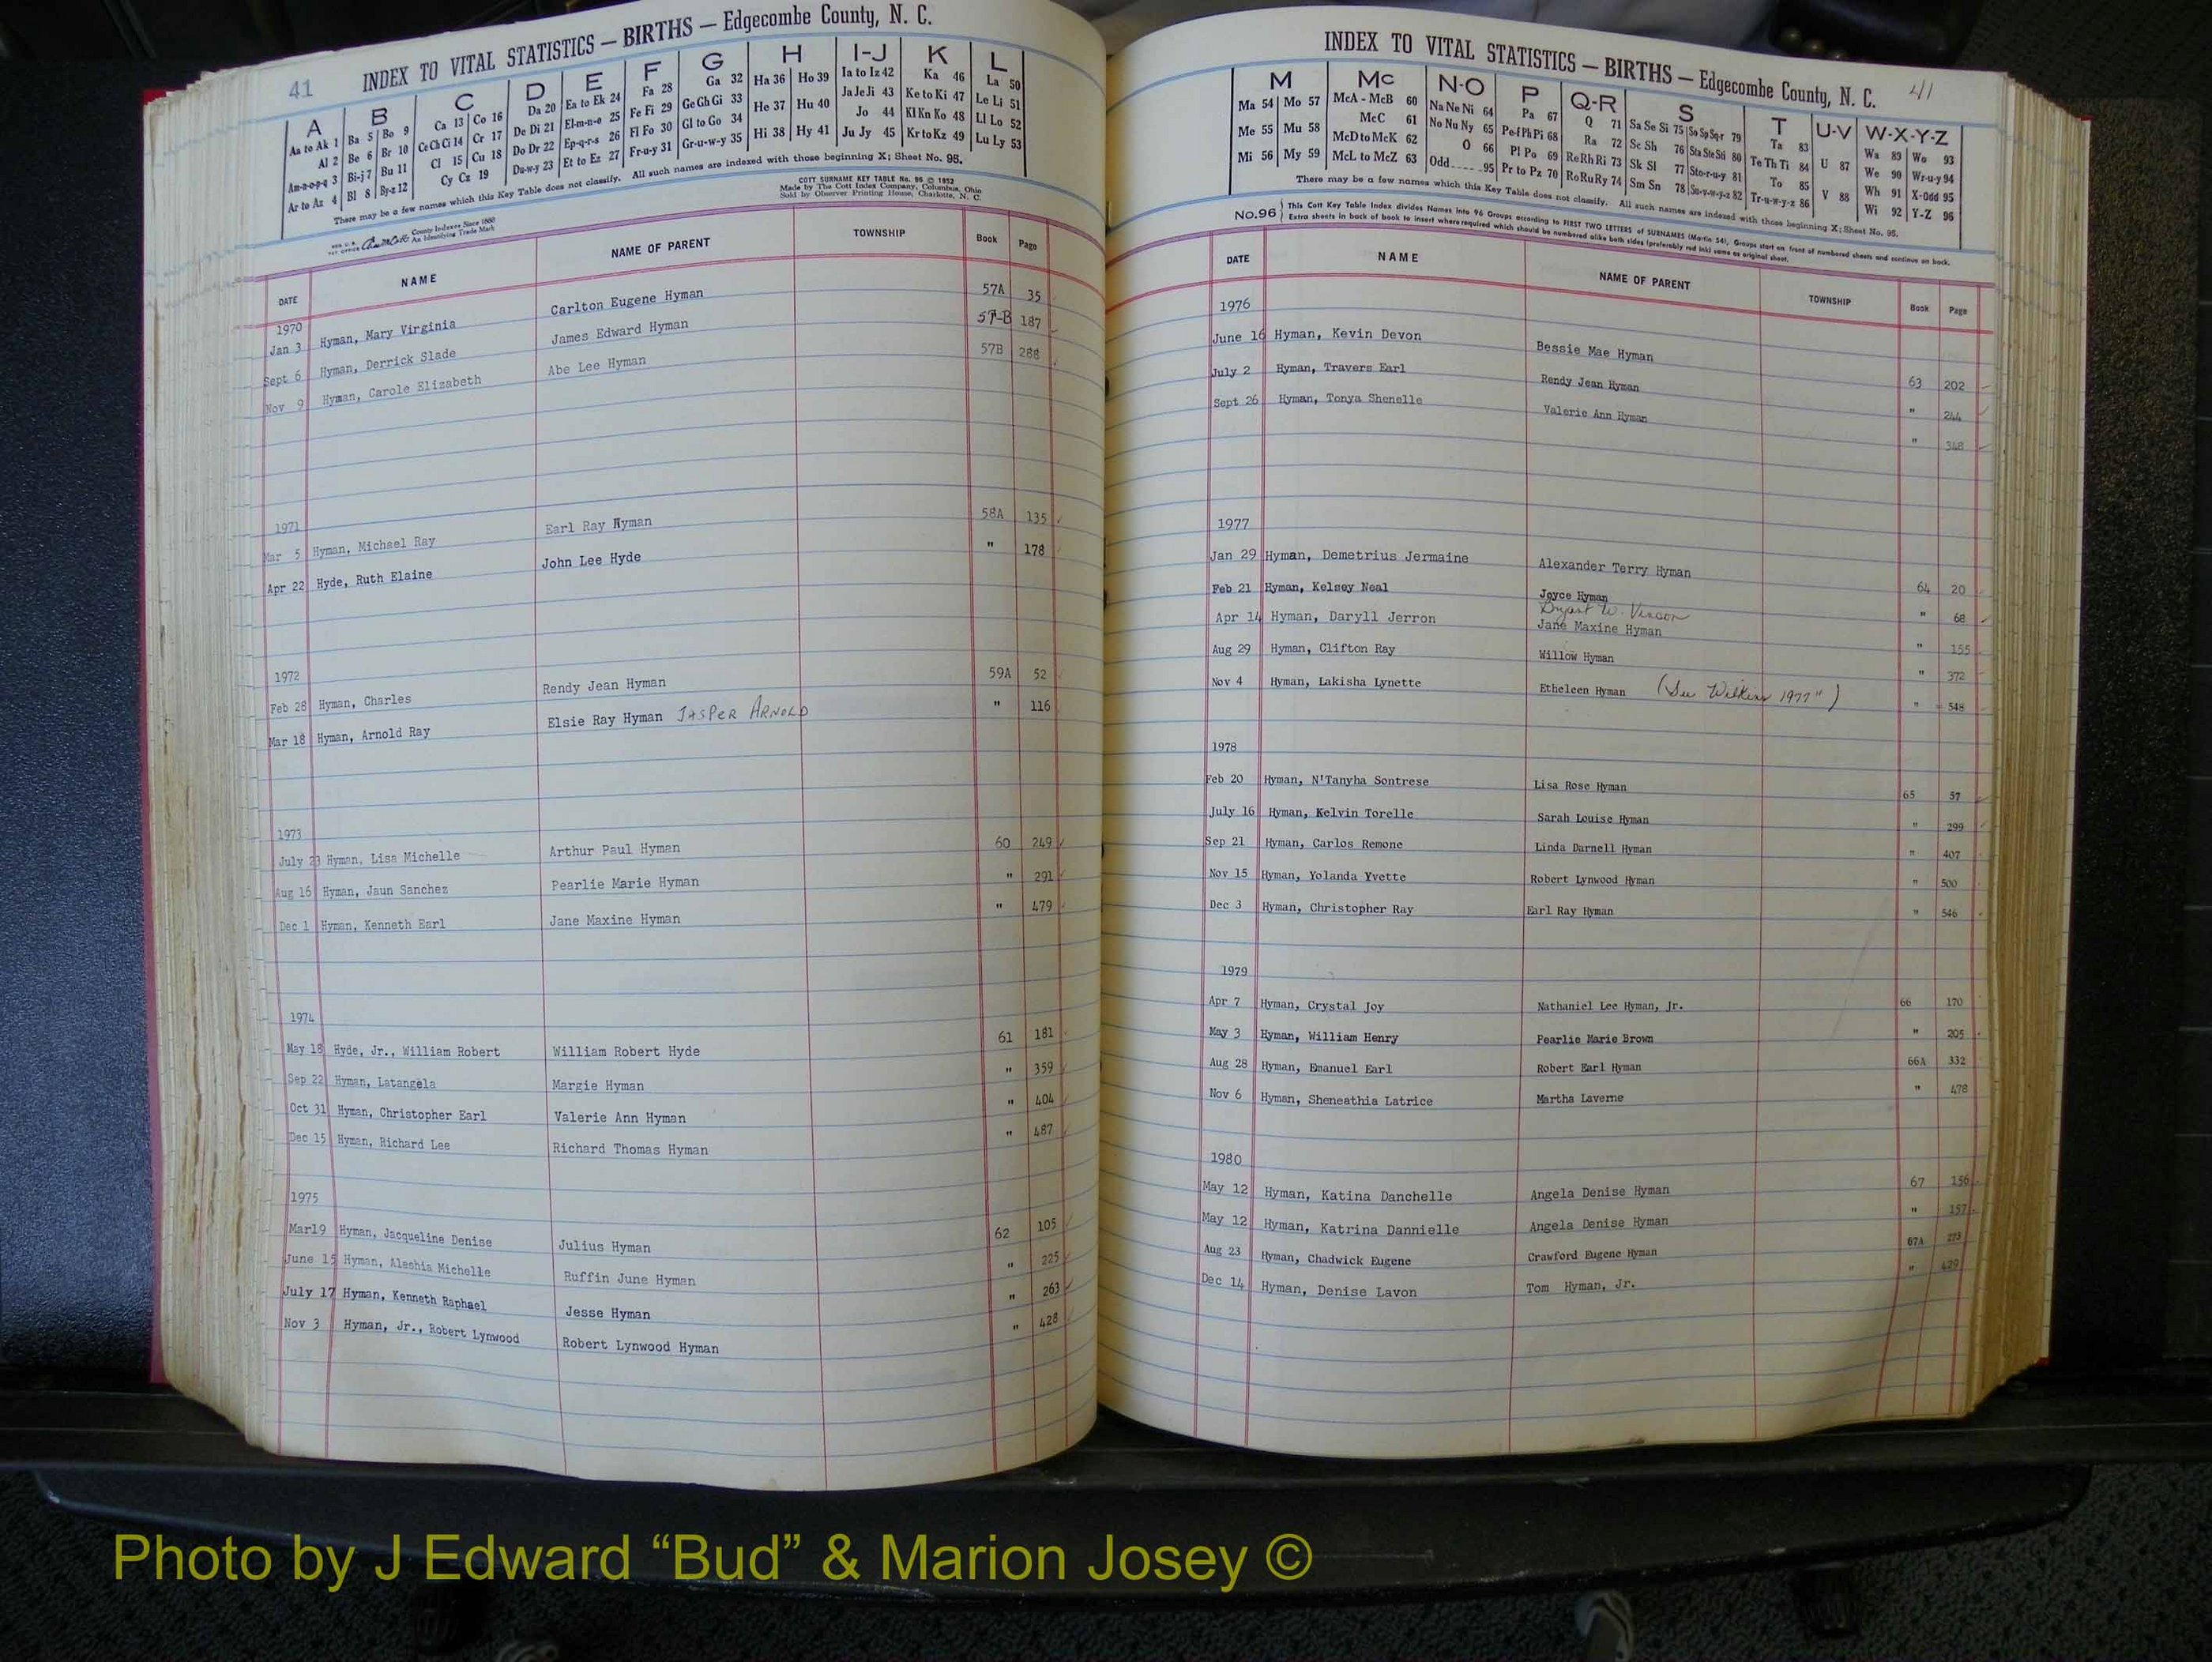 41 INDEX TO VITAL STATISTICS — BIRTHS — Edgecombe County, N. C.
A B C D E F G H I-J K L
Aa to Ak 1 Ba 5 Bo 9 Ca 13 Co 16 Da 20 Ea to Ek 24 Fa 28 Ga 32 Ha 36 Ho 39 Ia to Iz 42 Ka 46 La 50
Al 2 Be 6 Br 10 Ce Ch Ci 14 Cr 17 De Di 21 El-m-n-o 25 Fe Fi 29 Ge Gh Gi 33 He 37 Hu 40 Ja Je Ji 43 Ke to Ki 47 Le Li 51
Am-n-o-p-q 3 Bi-j 7 Bu 11 Cl 15 Cu 18 Do Dr 22 Ep-q-r-s 26 Fl Fo 30 Gl to Go 34 Hi 38 Hy 41 Jo 44 Kl Kn Ko 48 Ll Lo 52
Ar to Az 4 Bl 8 By-z 12 Cy Cz 19 Du-w-y 23 Et to Ez 27 Fr-u-y 31 Gr-u-w-y 35 Ju Jy 45 Kr to Kz 49 Lu Ly 53
There may be a few names which this Key Table does not classify. All such names are indexed with those beginning X; Sheet No. 95.
COTT SURNAME KEY TABLE No. 96 © 1952
Made by The Cott Index Company, Columbus, Ohio
Sold by Observer Printing House, Charlotte, N. C.
County Indexes Since 1888
An Identifying Trade Mark
DATE NAME NAME OF PARENT TOWNSHIP Book Page
1970
Jan 3 Hyman, Mary Virginia Carlton Eugene Hyman 57A 35
Sept 6 Hyman, Derrick Slade James Edward Hyman 57-B 187
Nov 9 Hyman, Carole Elizabeth Abe Lee Hyman 57B 288
1971
Mar 5 Hyman, Michael Ray Earl Ray Hyman 58A 135
Apr 22 Hyde, Ruth Elaine John Lee Hyde " 178
1972
Feb 28 Hyman, Charles Rendy Jean Hyman 59A 52
Mar 18 Hyman, Arnold Ray Elsie Ray Hyman JASPER ARNOLD " 116
1973
July 23 Hyman, Lisa Michelle Arthur Paul Hyman 60 249
Aug 16 Hyman, Jaun Sanchez Pearlie Marie Hyman " 291
Dec 1 Hyman, Kenneth Earl Jane Maxine Hyman " 479
1974
May 18 Hyde, Jr., William Robert William Robert Hyde 61 181
Sep 22 Hyman, Latangela Margie Hyman " 359
Oct 31 Hyman, Christopher Earl Valerie Ann Hyman " 404
Dec 15 Hyman, Richard Lee Richard Thomas Hyman " 487
1975
Mar19 Hyman, Jacqueline Denise Julius Hyman 62 105
June 15 Hyman, Aleshia Michelle Ruffin June Hyman " 225
July 17 Hyman, Kenneth Raphael Jesse Hyman " 263
Nov 3 Hyman, Jr., Robert Lynwood Robert Lynwood Hyman " 428
INDEX TO VITAL STATISTICS — BIRTHS — Edgecombe County, N. C. 41
M Mc N-O P Q-R S T U-V W-X-Y-Z
Ma 54 Mo 57 McA - McB 60 Na Ne Ni 64 Pa 67 Q 71 Sa Se Si 75 So Sp Sq-r 79 Ta 83 U 87 Wa 89 Wo 93
Me 55 Mu 58 McC 61 No Nu Ny 65 Pe-f Ph Pi 68 Ra 72 Sc Sh 76 Sta Ste Sti 80 Te Th Ti 84 V 88 We 90 Wr-u-y 94
Mi 56 My 59 McD to McK 62 O 66 Pl Po 69 Re Rh Ri 73 Sk Sl 77 Sto-r-u-y 81 To 85 Wh 91 X-Odd 95
McL to McZ 63 Odd 95 Pr to Pz 70 Ro Ru Ry 74 Sm Sn 78 Su-v-w-y-z 82 Tr-u-w-y-z 86 Wi 92 Y-Z 96
There may be a few names which this Key Table does not classify. All such names are indexed with those beginning X; Sheet No. 95.
No. 96 This Cott Key Table Index divides Names into 96 Groups according to FIRST TWO LETTERS of SURNAMES (Martin 54), Groups start on front of numbered sheets and continue on back.
Extra sheets in back of book to insert where required which should be numbered alike both sides (preferably red ink) same as original sheet.
DATE NAME NAME OF PARENT TOWNSHIP Book Page
1976
June 16 Hyman, Kevin Devon Bessie Mae Hyman 63 202
July 2 Hyman, Travers Earl Rendy Jean Hyman " 244
Sept 26 Hyman, Tonya Shenelle Valerie Ann Hyman " 348
1977
Jan 29 Hyman, Demetrius Jermaine Alexander Terry Hyman 64 20
Feb 21 Hyman, Kelsey Neal Joyce Hyman " 68
Bryant W. Vinson
Apr 14 Hyman, Daryll Jerron Jane Maxine Hyman " 155
Aug 29 Hyman, Clifton Ray Willow Hyman " 372
Nov 4 Hyman, Lakisha Lynette Etheleen Hyman (See Wilkins 1977") " 548
1978
Feb 20 Hyman, N'Tanyha Sontrese Lisa Rose Hyman 65 57
July 16 Hyman, Kelvin Torelle Sarah Louise Hyman " 299
Sep 21 Hyman, Carlos Remone Linda Darnell Hyman " 407
Nov 15 Hyman, Yolanda Yvette Robert Lynwood Hyman " 500
Dec 3 Hyman, Christopher Ray Earl Ray Hyman " 546
1979
Apr 7 Hyman, Crystal Joy Nathaniel Lee Hyman, Jr. 66 170
May 3 Hyman, William Henry Pearlie Marie Brown " 205
Aug 28 Hyman, Emanuel Earl Robert Earl Hyman 66A 332
Nov 6 Hyman, Sheneathia Latrice Martha Laverne " 478
1980
May 12 Hyman, Katina Danchelle Angela Denise Hyman 67 156
May 12 Hyman, Katrina Dannielle Angela Denise Hyman " 157
Aug 23 Hyman, Chadwick Eugene Crawford Eugene Hyman 67A 273
Dec 14 Hyman, Denise Lavon Tom Hyman, Jr. " 429
Photo by J Edward “Bud” & Marion Josey ©